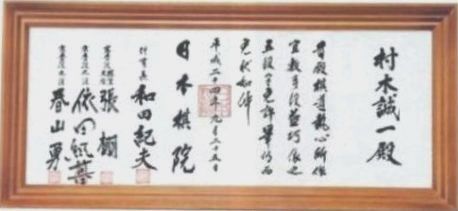 村木誠一殿
貴殿棋道執心所作
宜敷手段益巧依之
五段令免許畢仍而
免状如件
平成二十四年九月二十五日
日本棋院
理事長 和田紀夫
張栩
依田紀基
春山勇